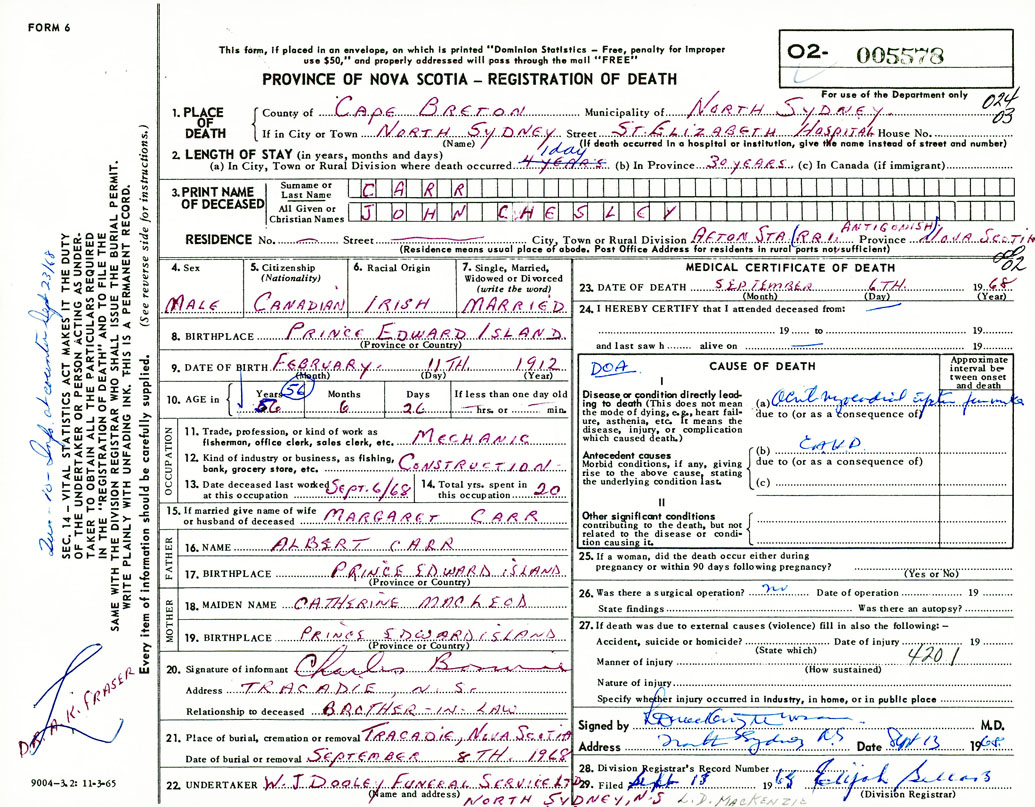 FORM 6
This form, if placed in an envelope, on which is printed "Dominion Statistics – Free, penalty for improper
use $50," and properly addressed will pass through the mail "FREE"
PROVINCE OF NOVA SCOTIA – REGISTRATION OF DEATH
02- 005578
For use of the Department only
024
03
1. PLACE OF DEATH
County of CAPE BRETON Municipality of NORTH SYDNEY
If in City or Town NORTH SYDNEY Street ST. ELIZABETH HOSPITAL House No.
(Name) (If death occurred in a hospital or institution, give the name instead of street and number)
2. LENGTH OF STAY (in years, months and days) 1 day
(a) In City, Town or Rural Division where death occurred 4 YEARS (b) In Province 30 YEARS (c) In Canada (if immigrant)
3. PRINT NAME OF DECEASED
Surname or Last Name CARR
All Given or Christian Names JOHN CHESLEY
RESIDENCE No. Street City, Town or Rural Division AFTON STA. (RR1, ANTIGONISH) Province NOVA SCOTIA
(Residence means usual place of abode. Post Office Address for residents in rural ports not sufficient)
02
4. Sex MALE
5. Citizenship (Nationality) CANADIAN
6. Racial Origin IRISH
7. Single, Married, Widowed or Divorced (write the word) MARRIED
8. BIRTHPLACE PRINCE EDWARD ISLAND
(Province or Country)
9. DATE OF BIRTH FEBRUARY 11TH 1912
(Month) (Day) (Year)
10. AGE in Years 56 56 Months 6 Days 26 If less than one day old hrs. or min.
OCCUPATION
11. Trade, profession, or kind of work as fisherman, office clerk, sales clerk, etc. MECHANIC
12. Kind of industry or business, as fishing, bank, grocery store, etc. CONSTRUCTION
13. Date deceased last worked at this occupation SEPT. 6/68
14. Total yrs. spent in this occupation 20
15. If married give name of wife or husband of deceased MARGARET CARR
FATHER
16. NAME ALBERT CARR
17. BIRTHPLACE PRINCE EDWARD ISLAND
(Province or Country)
MOTHER
18. MAIDEN NAME CATHERINE MACLEOD
19. BIRTHPLACE PRINCE EDWARD ISLAND
(Province or Country)
20. Signature of informant Charles
Address TRACADIE, N.S.
Relationship to deceased BROTHER-IN LAW
21. Place of burial, cremation or removal TRACADIE, NOVA SCOTIA
Date of burial or removal SEPTEMBER 8TH. 1968
22. UNDERTAKER W. J. DOOLEY FUNERAL SERVICE LTD
(Name and address) NORTH SYDNEY, N.S L.D. MACKENZIE
MEDICAL CERTIFICATE OF DEATH
23. DATE OF DEATH SEPTEMBER 6TH. 1968
(Month) (Day) (Year)
24. I HEREBY CERTIFY that I attended deceased from:
19 to 19
and last saw h alive on 19
DOA
CAUSE OF DEATH
Approximate interval between onset and death
I
Disease or condition directly leading to death (This does not mean the mode of dying, e.g., heart failure, asthenia, etc. It means the disease, injury, or complication which caused death.)
(a) myocardial
due to (or as a consequence of)
Antecedent causes
Morbid conditions, if any, giving rise to the above cause, stating the underlying condition last.
(b)
due to (or as a consequence of)
(c)
II
Other significant conditions contributing to the death, but not related to the disease or condition causing it.
25. If a woman, did the death occur either during pregnancy or within 90 days following pregnancy?
(Yes or No)
26. Was there a surgical operation? no Date of operation 19
State findings Was there an autopsy?
27. If death was due to external causes (violence) fill in also the following: –
Accident, suicide or homicide? Date of injury 19
(State which)
Manner of injury 4201
(How sustained)
Nature of injury
Specify whether injury occurred in industry, in home, or in public place
Signed by M.D.
Address North Sydney NS Date Sept 13 1968
28. Division Registrar's Record Number
29. Filed Sept 13 1968 Elijah
(Division Registrar)
SEC. 14 – VITAL STATISTICS ACT MAKES IT THE DUTY
OF THE UNDERTAKER OR PERSON ACTING AS UNDER-
TAKER TO OBTAIN ALL THE PARTICULARS REQUIRED
IN THE "REGISTRATION OF DEATH" AND TO FILE THE
SAME WITH THE DIVISION REGISTRAR WHO SHALL ISSUE THE BURIAL PERMIT.
WRITE PLAINLY WITH UNFADING INK. THIS IS A PERMANENT RECORD.
Every item of information should be carefully supplied. (See reverse side for instructions.)
Info. at counter Sept 23/68
DR. A. K. FRASER
9004–3.2: 11-3-65